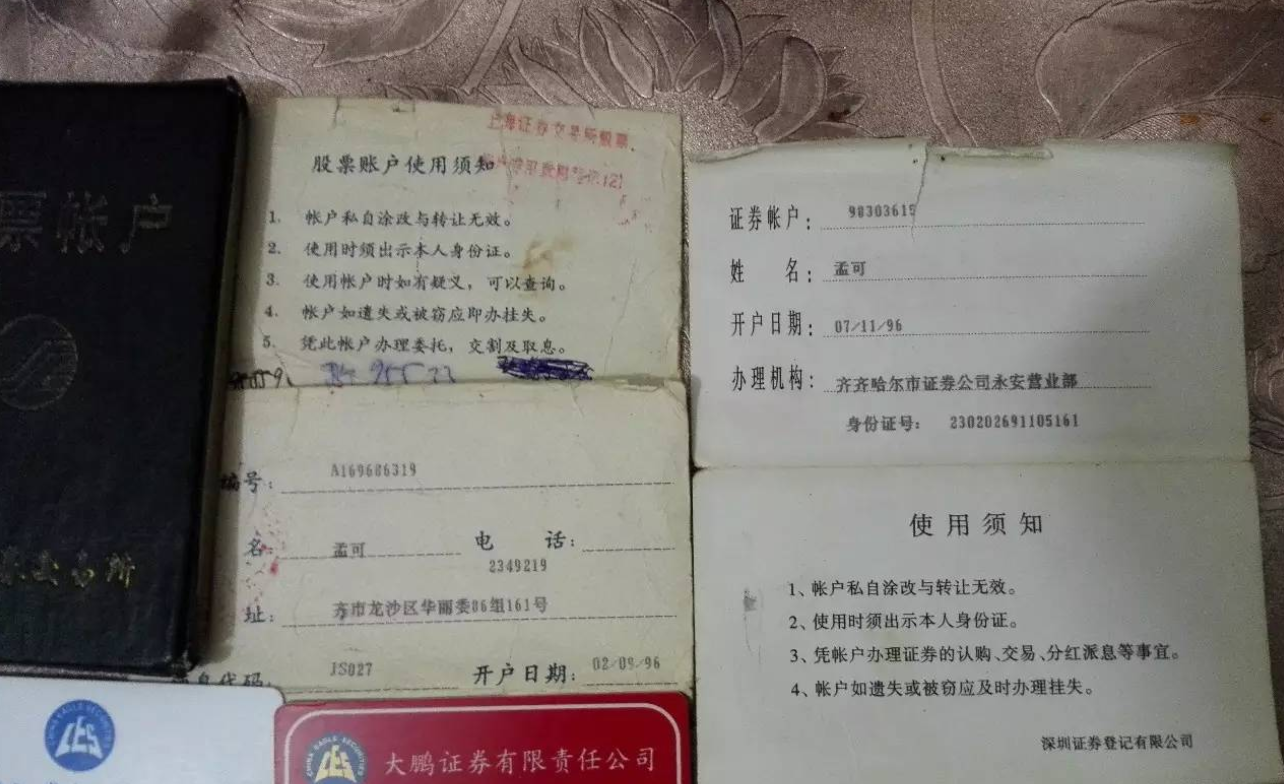 票帐户
易所
上海证券交易所股票
股票账户使用须知
1. 帐户私自涂改与转让无效。
2. 使用时须出示本人身份证。
3. 使用帐户时如有疑义，可以查询。
4. 帐户如遗失或被窃应即办挂失。
5. 凭此帐户办理委托，交割及取息。
编号： A169686319
名： 孟可 电 话：
2349219
址： 齐市龙沙区华丽委86组161号
息代码： JS027 开户日期： 02/09/96
CHINA EAGLE SECURITIES
CES
CHINA EAGLE SECURITIES
CES
大鹏证券有限责任公司
证券帐户： 98303615
姓 名： 孟可
开户日期： 07/11/96
办理机构： 齐齐哈尔市证券公司永安营业部
身份证号： 230202691105161
使用须知
1、帐户私自涂改与转让无效。
2、使用时须出示本人身份证。
3、凭帐户办理证券的认购、交易、分红派息等事宜。
4、帐户如遗失或被窃应及时办理挂失。
深圳证券登记有限公司